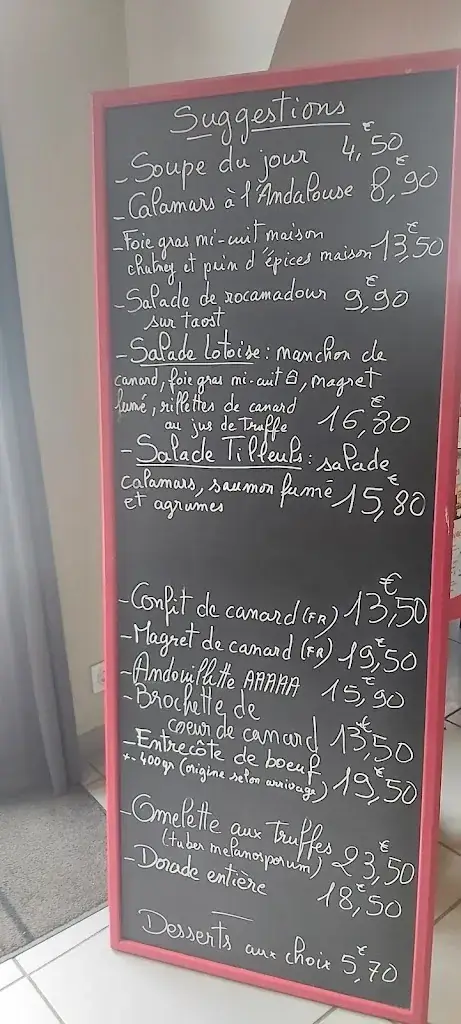 Suggestions
- Soupe du jour 4,50€
- Calamars à l'Andalouse 8,90€
- Foie gras mi-cuit maison
chutney et pain d'épices maison 13,50€
- Salade de rocamadour 9,90€
sur taost
- Salade Lotoise : manchon de
canard, foie gras mi-cuit, magret
fumé, rillettes de canard
au jus de Truffe 16,80€
- Salade Tilleuls : salade
calamars, saumon fumé 15,80€
et agrumes
- Confit de canard (FR) 13,50€
- Magret de canard (FR) 19,50€
- Andouillette AAAAA 15,90€
- Brochette de
coeur de canard 13,50€
- Entrecôte de boeuf
+- 400gr (origine selon arrivage) 19,50€
- Omelette aux Truffes
(tuber melanosporum) 23,50€
- Dorade entière 18,50€
Desserts aux choix 5,70€